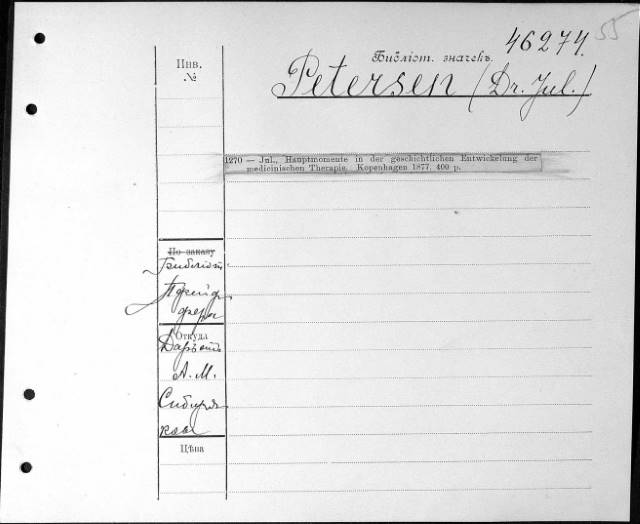 55
46274.
Инв.
№
Библіот. значекъ.
Petersen (Dr. Jul.)
1270 — Jul., Hauptmomente in der geschichtlichen Entwickelung der
medicinischen Therapie. Kopenhagen 1877. 400 p.
По заказу
Библіот.
Пфейф
фера
Откуда
Даръ отъ
А. М.
Сибиря
кова
Цѣна